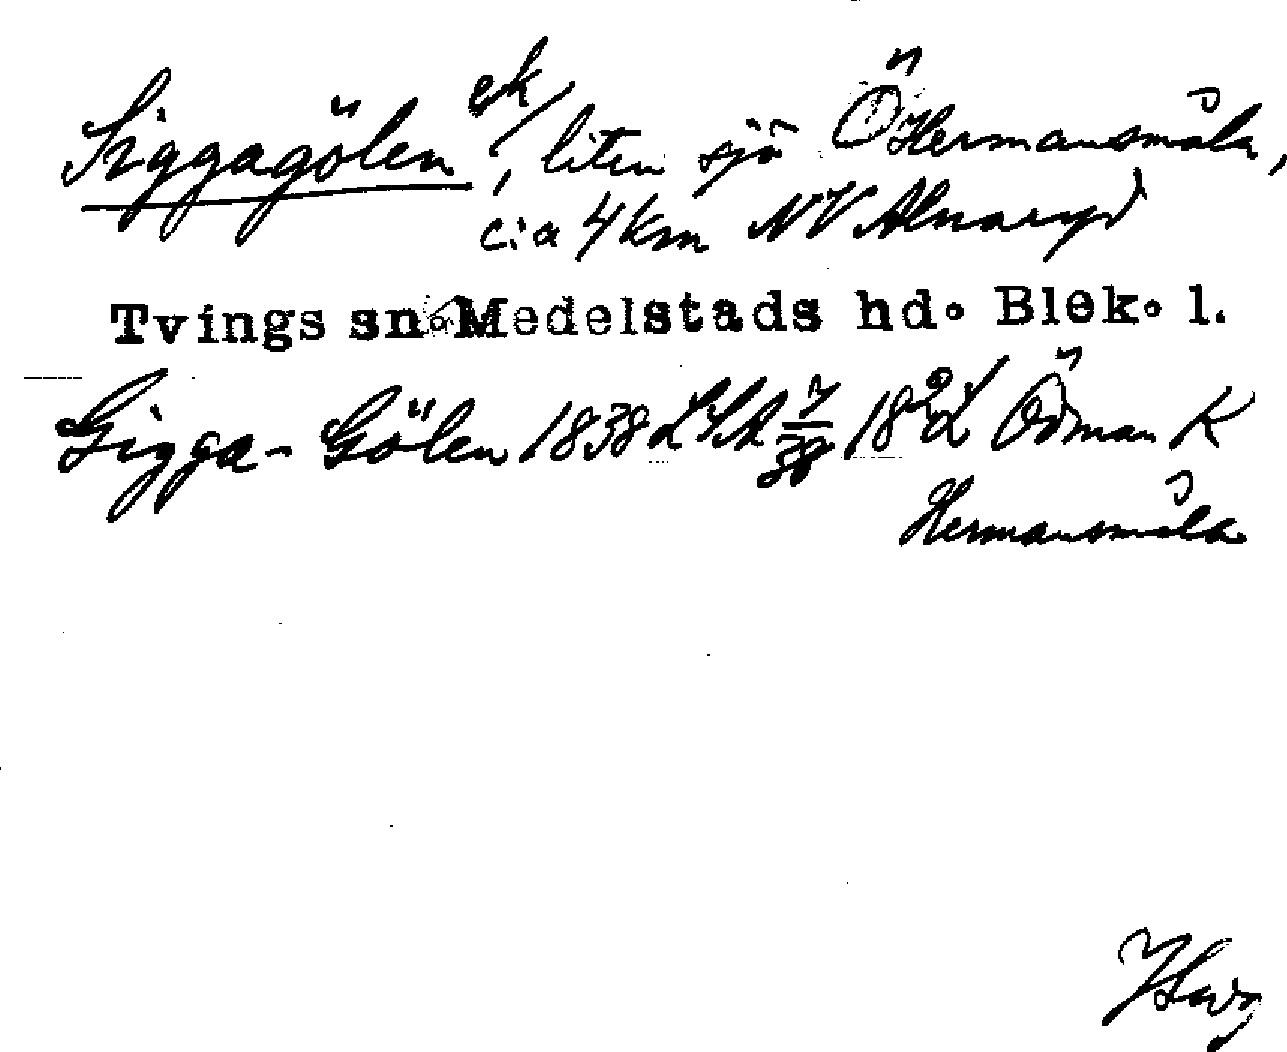 Siggagölen ek/, liten sjö Ö Hermansmåla,
c:a 4 km NV Alnaryd
Tvings sn. Medelstads hd. Blek. l.
Gigga-Gölen 1838 LSA 18 Ödman K
Hermansmåla